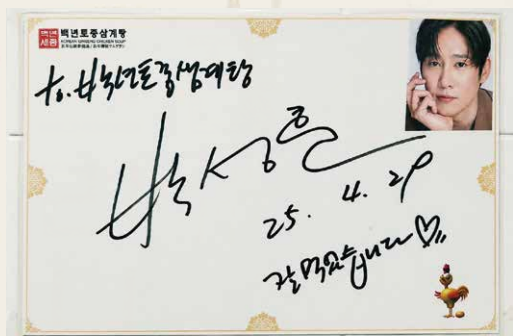 백년토종삼계탕
KOREAN GINSENG CHICKEN SOUP
to. 백년토종삼계탕
박성훈
25. 4. 29
잘 먹었습니다♡